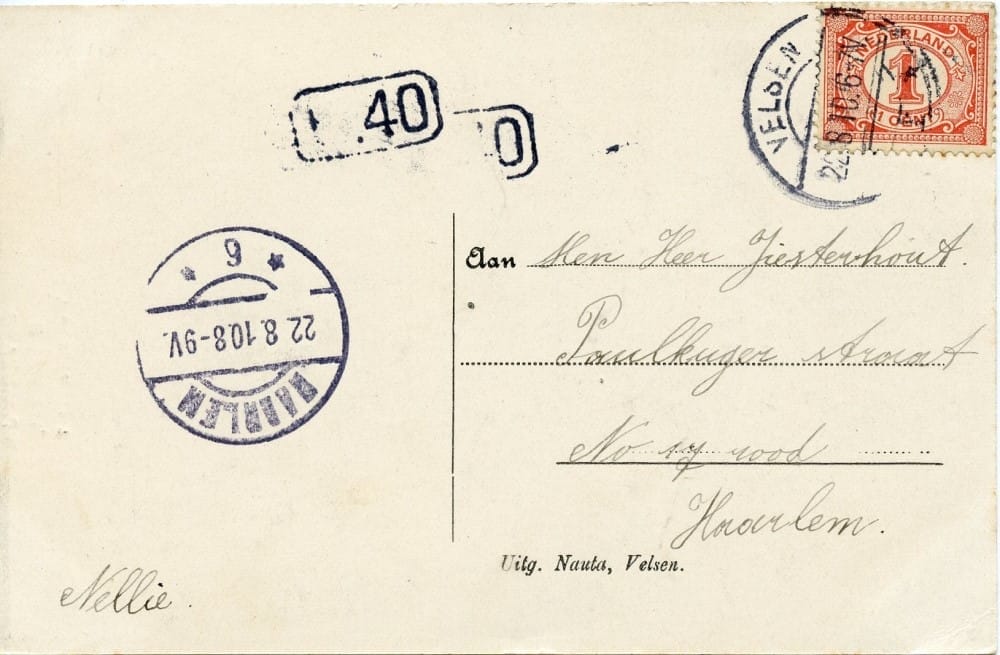 NEDERLAND
1
1 CENT
VELSEN
22.8.10.6-N
.40
0
Aan Men Heer Jiesterhout.
Paulkuger straat
No 17 rood
Haarlem.
6
22.8.10.8-9V.
HAARLEM
Uitg. Nauta, Velsen.
Nellie.